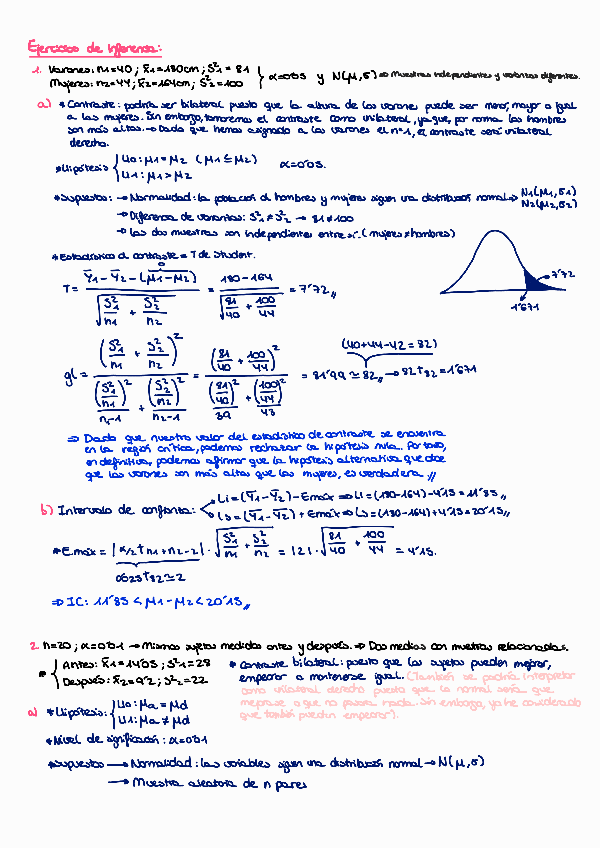 Ejercicios de Inferencia:
1. Varones: n1=40; x̄1=180cm; S²1=81
Mujeres: n2=44; x̄2=164cm; S²2=100
} α=0'05 y N(μ,σ) ⇒ Muestras independientes y varianzas diferentes.
a) * Contraste: podría ser bilateral puesto que la altura de los varones puede ser menor, mayor o igual
a las mujeres. Sin embargo, tomaremos el contraste como unilateral, ya que, por norma los hombres
son más altos. → Dado que hemos asignado a los varones el nº1, el contraste será unilateral
derecho.
* Hipótesis { H0: μ1=μ2 (μ1≤μ2) α=0'05.
H1: μ1>μ2
* Supuestos: → Normalidad: la población de hombres y mujeres siguen una distribución normal → N1(μ1,σ1)
N2(μ2,σ2)
→ Diferencia de varianzas: S²1≠S²2 → 81≠100
→ Las dos muestras son independientes entre sí. (mujeres≠hombres)
* Estadístico de contraste = T de Student.
T= Ȳ1-Ȳ2-(μ1-μ2) / √(S²1/n1 + S²2/n2) = 180-164 / √(81/40 + 100/44) = 7'72,,
0
7'72
1'671
gl = (S²1/n1 + S²2/n2)² / ((S²1/n1)²/n1-1 + (S²2/n2)²/n2-1) = (81/40 + 100/44)² / ((81/40)²/39 + (100/44)²/43) = 81'99 ≅ 82,, → 82t82=1'671
(40+44-42=82)
⇒ Dado que nuestro valor del estadístico de contraste se encuentra
en la región crítica, podemos rechazar la hipótesis nula. Por tanto,
en definitiva, podemos afirmar que la hipótesis alternativa que dice
que los varones son más altos que las mujeres, es verdadera,,
b) Intervalo de confianza: Li=(Ȳ1-Ȳ2)-Emáx ⇒ Li=(180-164)-4'15=11'85,,
Ls=(Ȳ1-Ȳ2)+Emáx ⇒ Ls=(180-164)+4'15=20'15,,
* Emáx = |α/2 t n1+n2-2| · √(S²1/n1 + S²2/n2) = |2| · √(81/40 + 100/44) = 4'15.
0'025t82≅2
⇒ IC: 11'85 < μ1-μ2 < 20'15,,
2. n=20; α=0'01 → Mismos sujetos medidos antes y después. ⇒ Dos medias con muestras relacionadas.
* { Antes: x̄1=14'05; S²1=28
Después: x̄2=9'2; S²2=22
* Contraste bilateral: puesto que los sujetos pueden mejorar,
empeorar o mantenerse igual. (También se podría interpretar
como unilateral derecho puesto que lo normal sería que
mejorase o que no pasara nada. Sin embargo, yo he considerado
que también pueden empeorar).
a) * Hipótesis: { H0: μa = μd
H1: μa ≠ μd
* Nivel de significación: α=0'01
* Supuestos → Normalidad: las variables siguen una distribución normal → N(μ,σ)
→ Muestra aleatoria de n pares